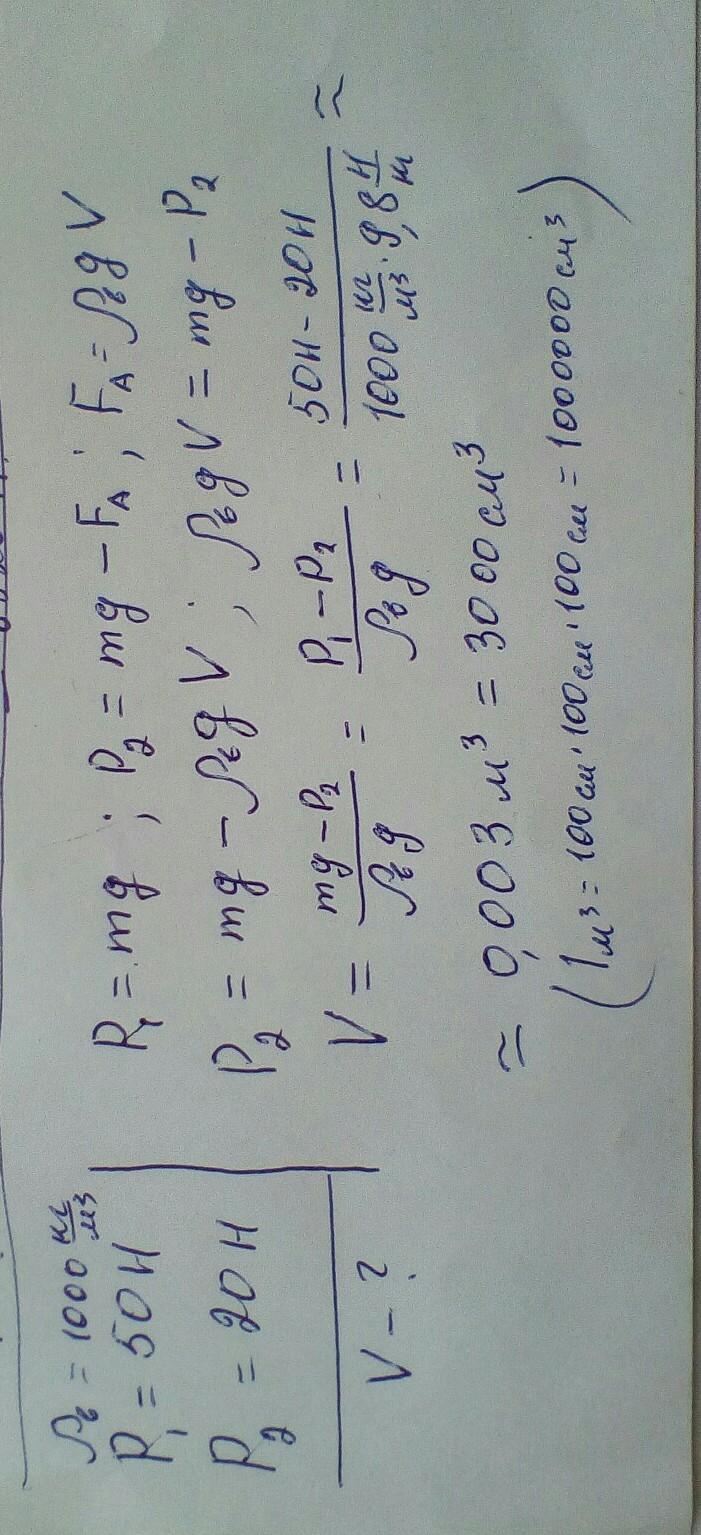 ρв = 1000 кг/м³
P₁ = 50 Н
P₂ = 20 Н
V - ?
P₁ = mg ; P₂ = mg - FA ; FA = ρвgV
P₂ = mg - ρвgV ; ρвgV = mg - P₂
V = (mg - P₂)/(ρвg) = (P₁ - P₂)/(ρвg) = (50Н - 20Н)/(1000 кг/м³ · 9,8 Н/м) ≈
≈ 0,003 м³ = 3000 см³
(1м³ = 100см · 100см · 100см = 1000000 см³)